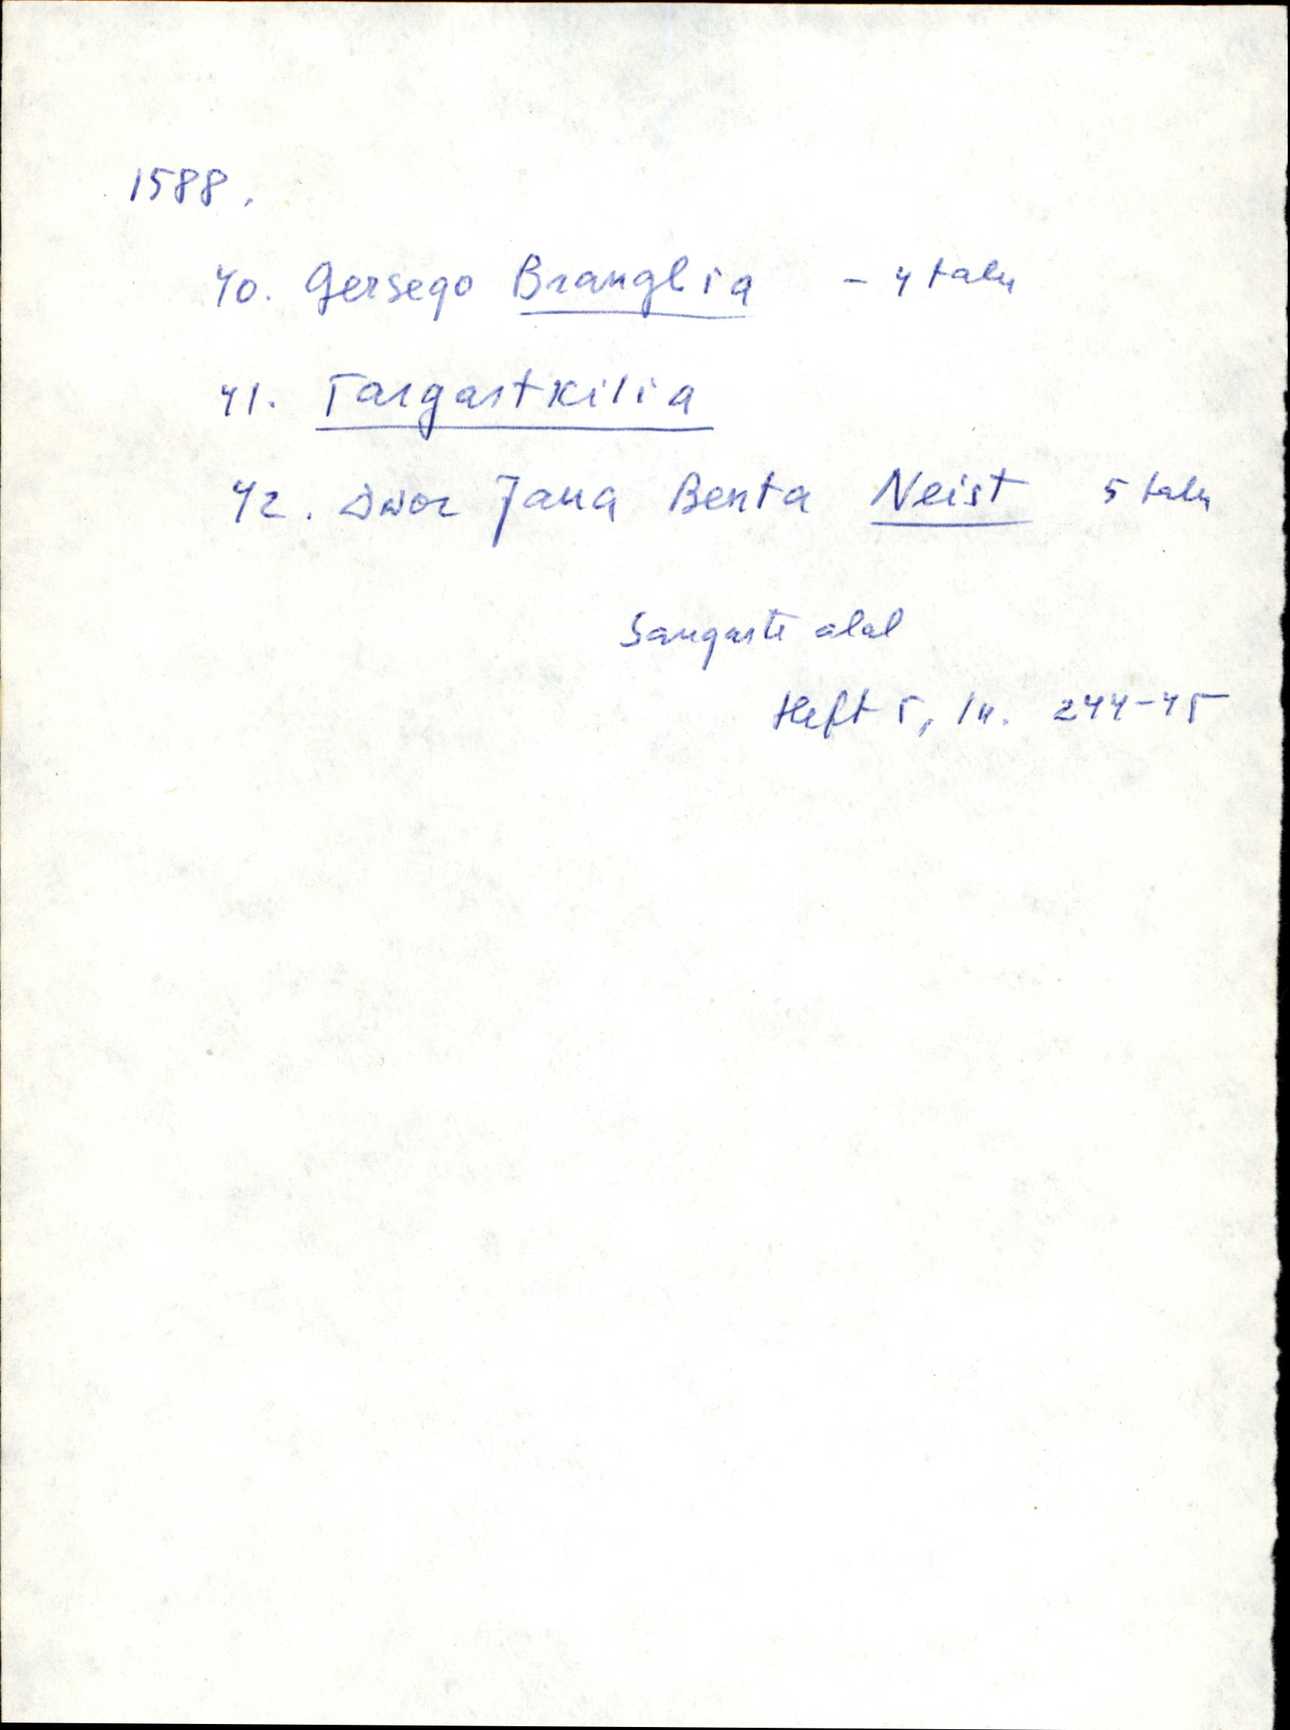 1588.
40. Gersego Branglia - 4 talu
41. Targastkilia
42. Dwor Jana Benta Neist 5 talu
Sangaste alal
Heft 5, lk. 244-45